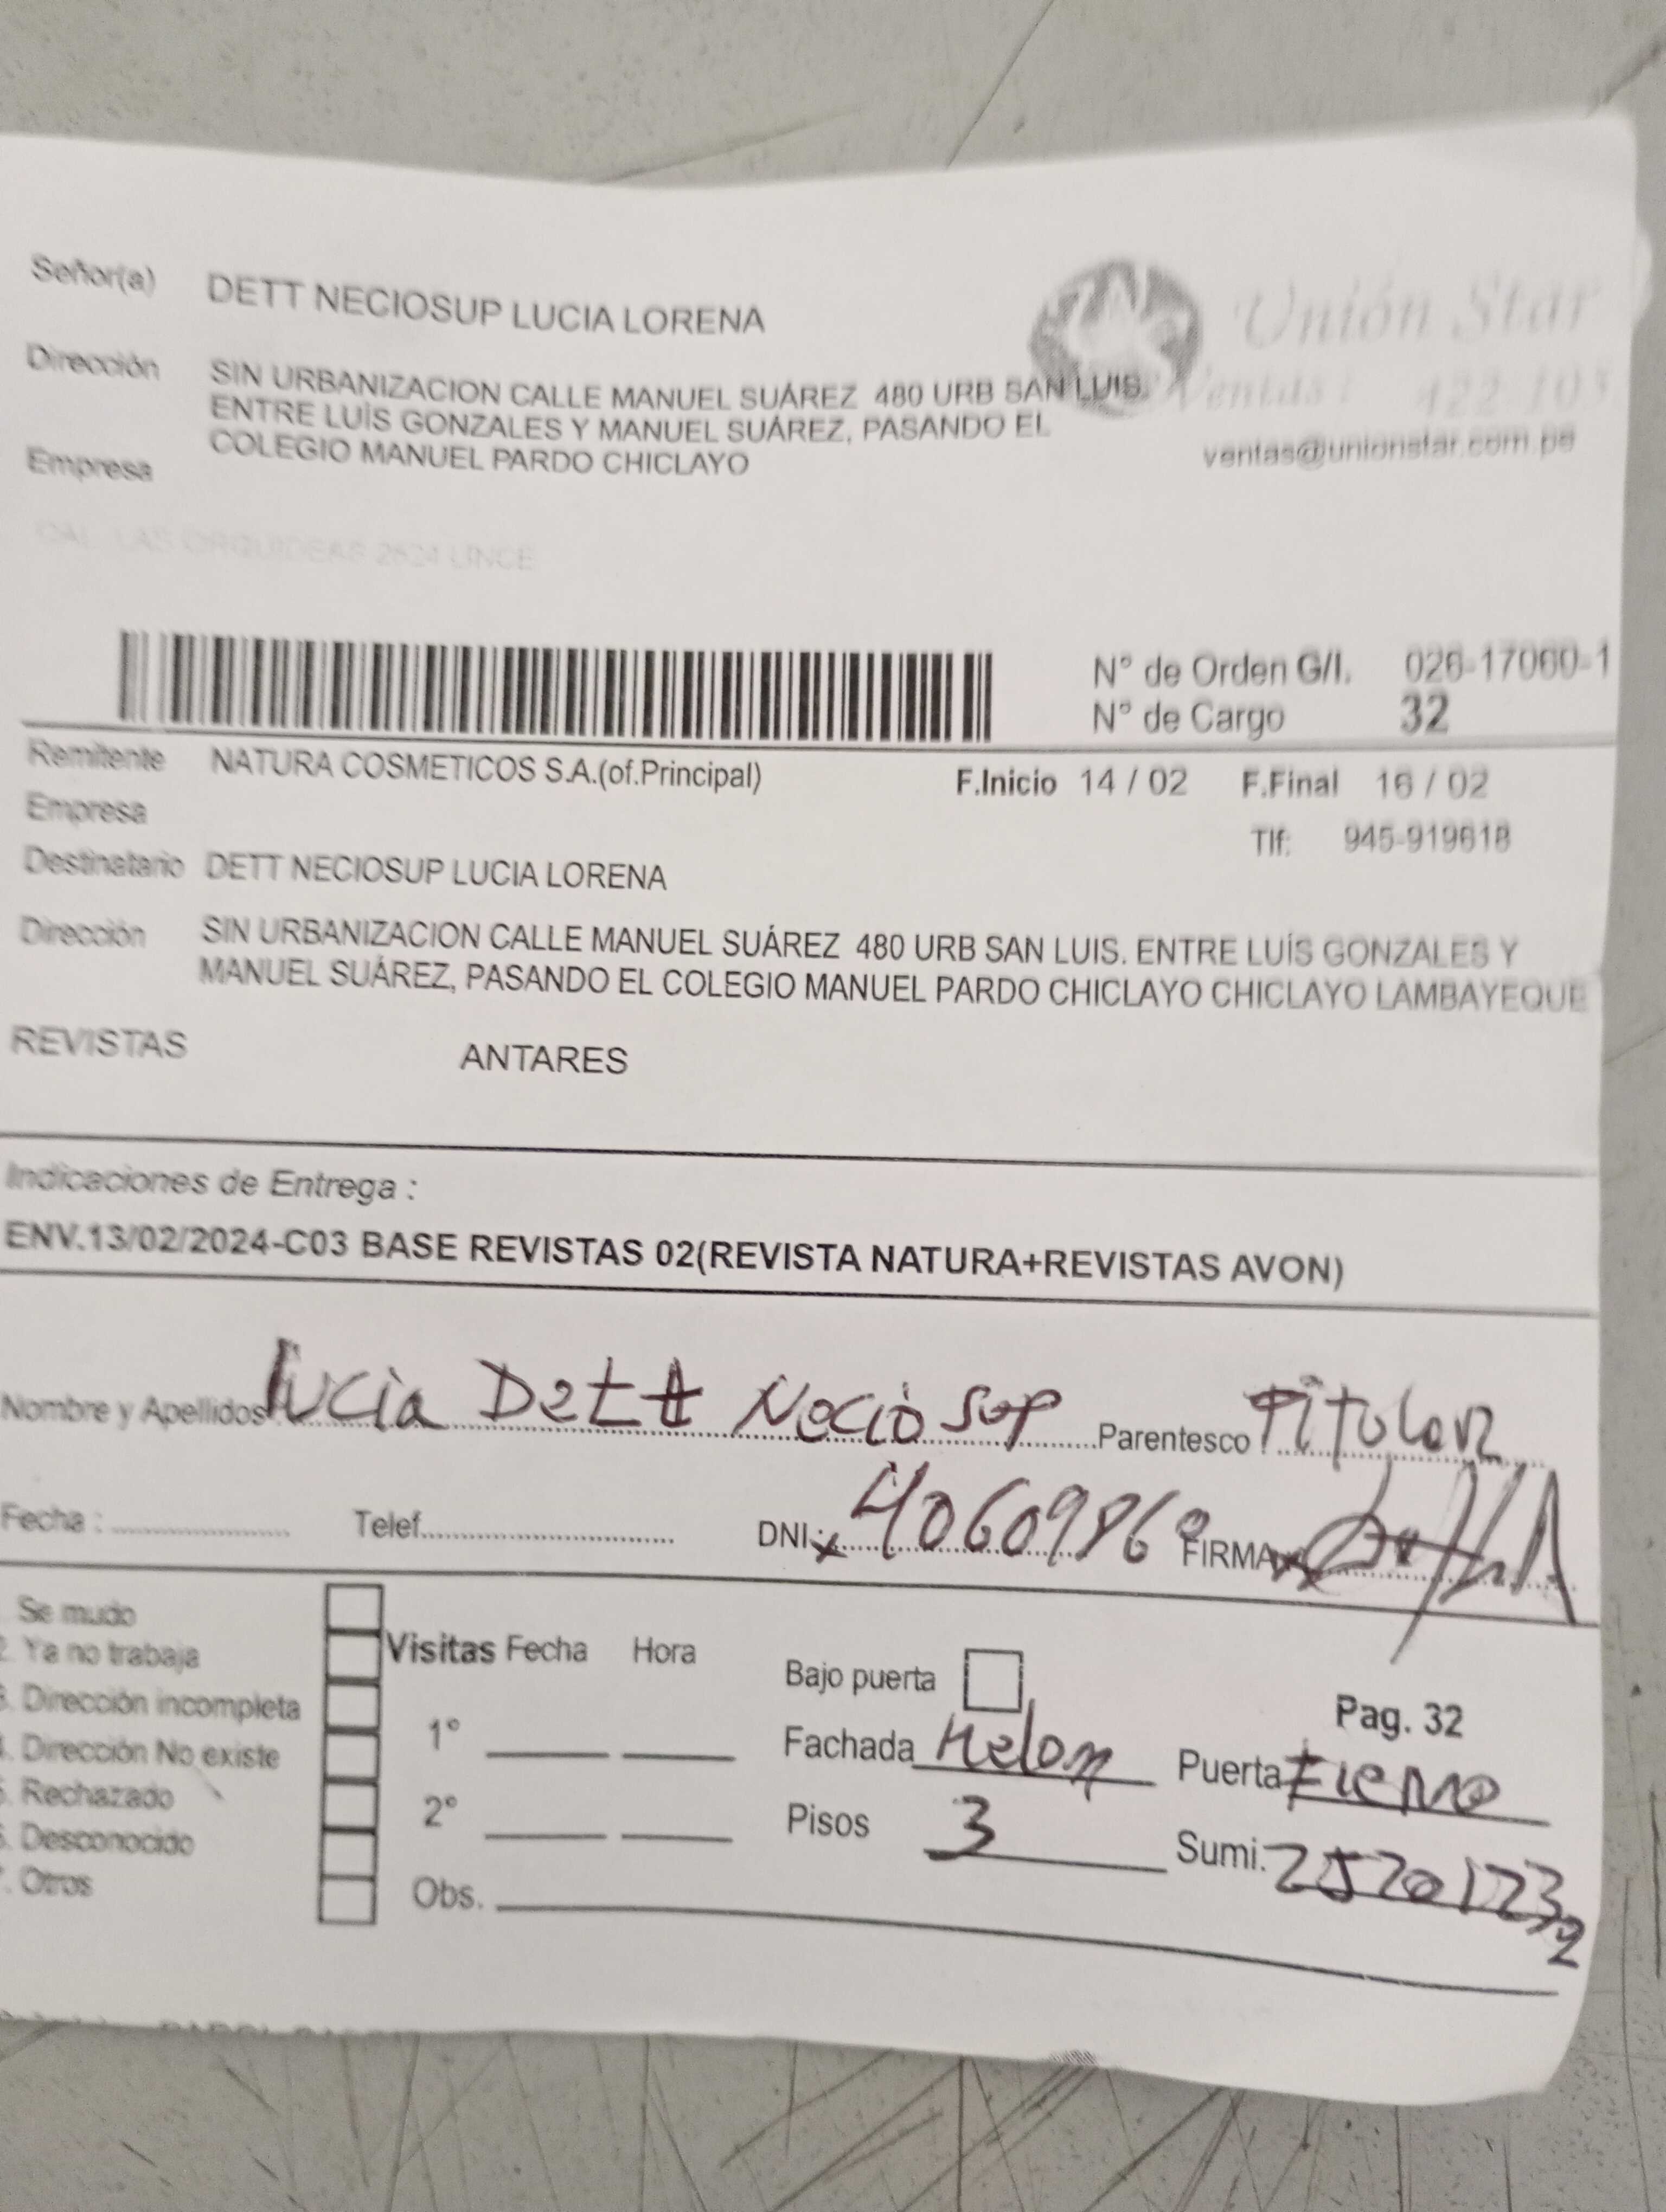 Señor(a) DETT NECIOSUP LUCIA LORENA
Unión Star
Dirección SIN URBANIZACION CALLE MANUEL SUÁREZ 480 URB SAN LUIS.
ENTRE LUÍS GONZALES Y MANUEL SUÁREZ, PASANDO EL
COLEGIO MANUEL PARDO CHICLAYO
Ventas: 422-103
ventas@unionstar.com.pe
Empresa
CAL. LAS ORQUIDEAS 2624 LINCE
N° de Orden G/I. 026-17060-1
N° de Cargo 32
Remitente NATURA COSMETICOS S.A.(of.Principal) F.Inicio 14 / 02 F.Final 16 / 02
Empresa
Tlf: 945-919618
Destinatario DETT NECIOSUP LUCIA LORENA
Dirección SIN URBANIZACION CALLE MANUEL SUÁREZ 480 URB SAN LUIS. ENTRE LUÍS GONZALES Y
MANUEL SUÁREZ, PASANDO EL COLEGIO MANUEL PARDO CHICLAYO CHICLAYO LAMBAYEQUE
REVISTAS ANTARES
Indicaciones de Entrega :
ENV.13/02/2024-C03 BASE REVISTAS 02(REVISTA NATURA+REVISTAS AVON)
Nombre y Apellidos Lucia Dett Neciosup Parentesco Titular
Fecha : Telef. DNI: 40609868 FIRMA
Se mudo
2. Ya no trabaja
3. Dirección incompleta
4. Dirección No existe
5. Rechazado
6. Desconocido
7. Otros
Visitas Fecha Hora
1°
2°
Obs.
Bajo puerta
Pag. 32
Fachada Melon Puerta Fierro
Pisos 3 Sumi. 25201232